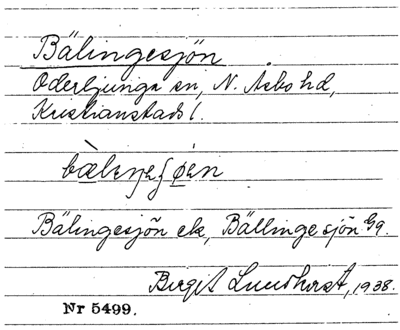 Bälingesjön
Oderljunga sn, N. Åsbo hd,
Kristianstads l.
Bälingesjön ek, Bällingesjön Gg.
Birgit Lundkvist, 1938.
Nr 5499.